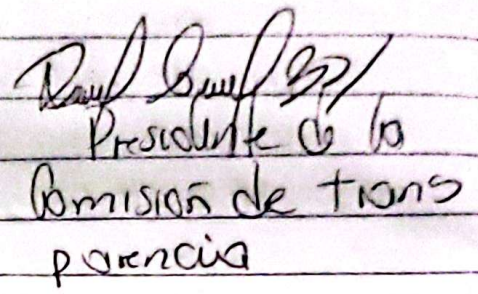 Presidente de la
Comisión de trans
parencia